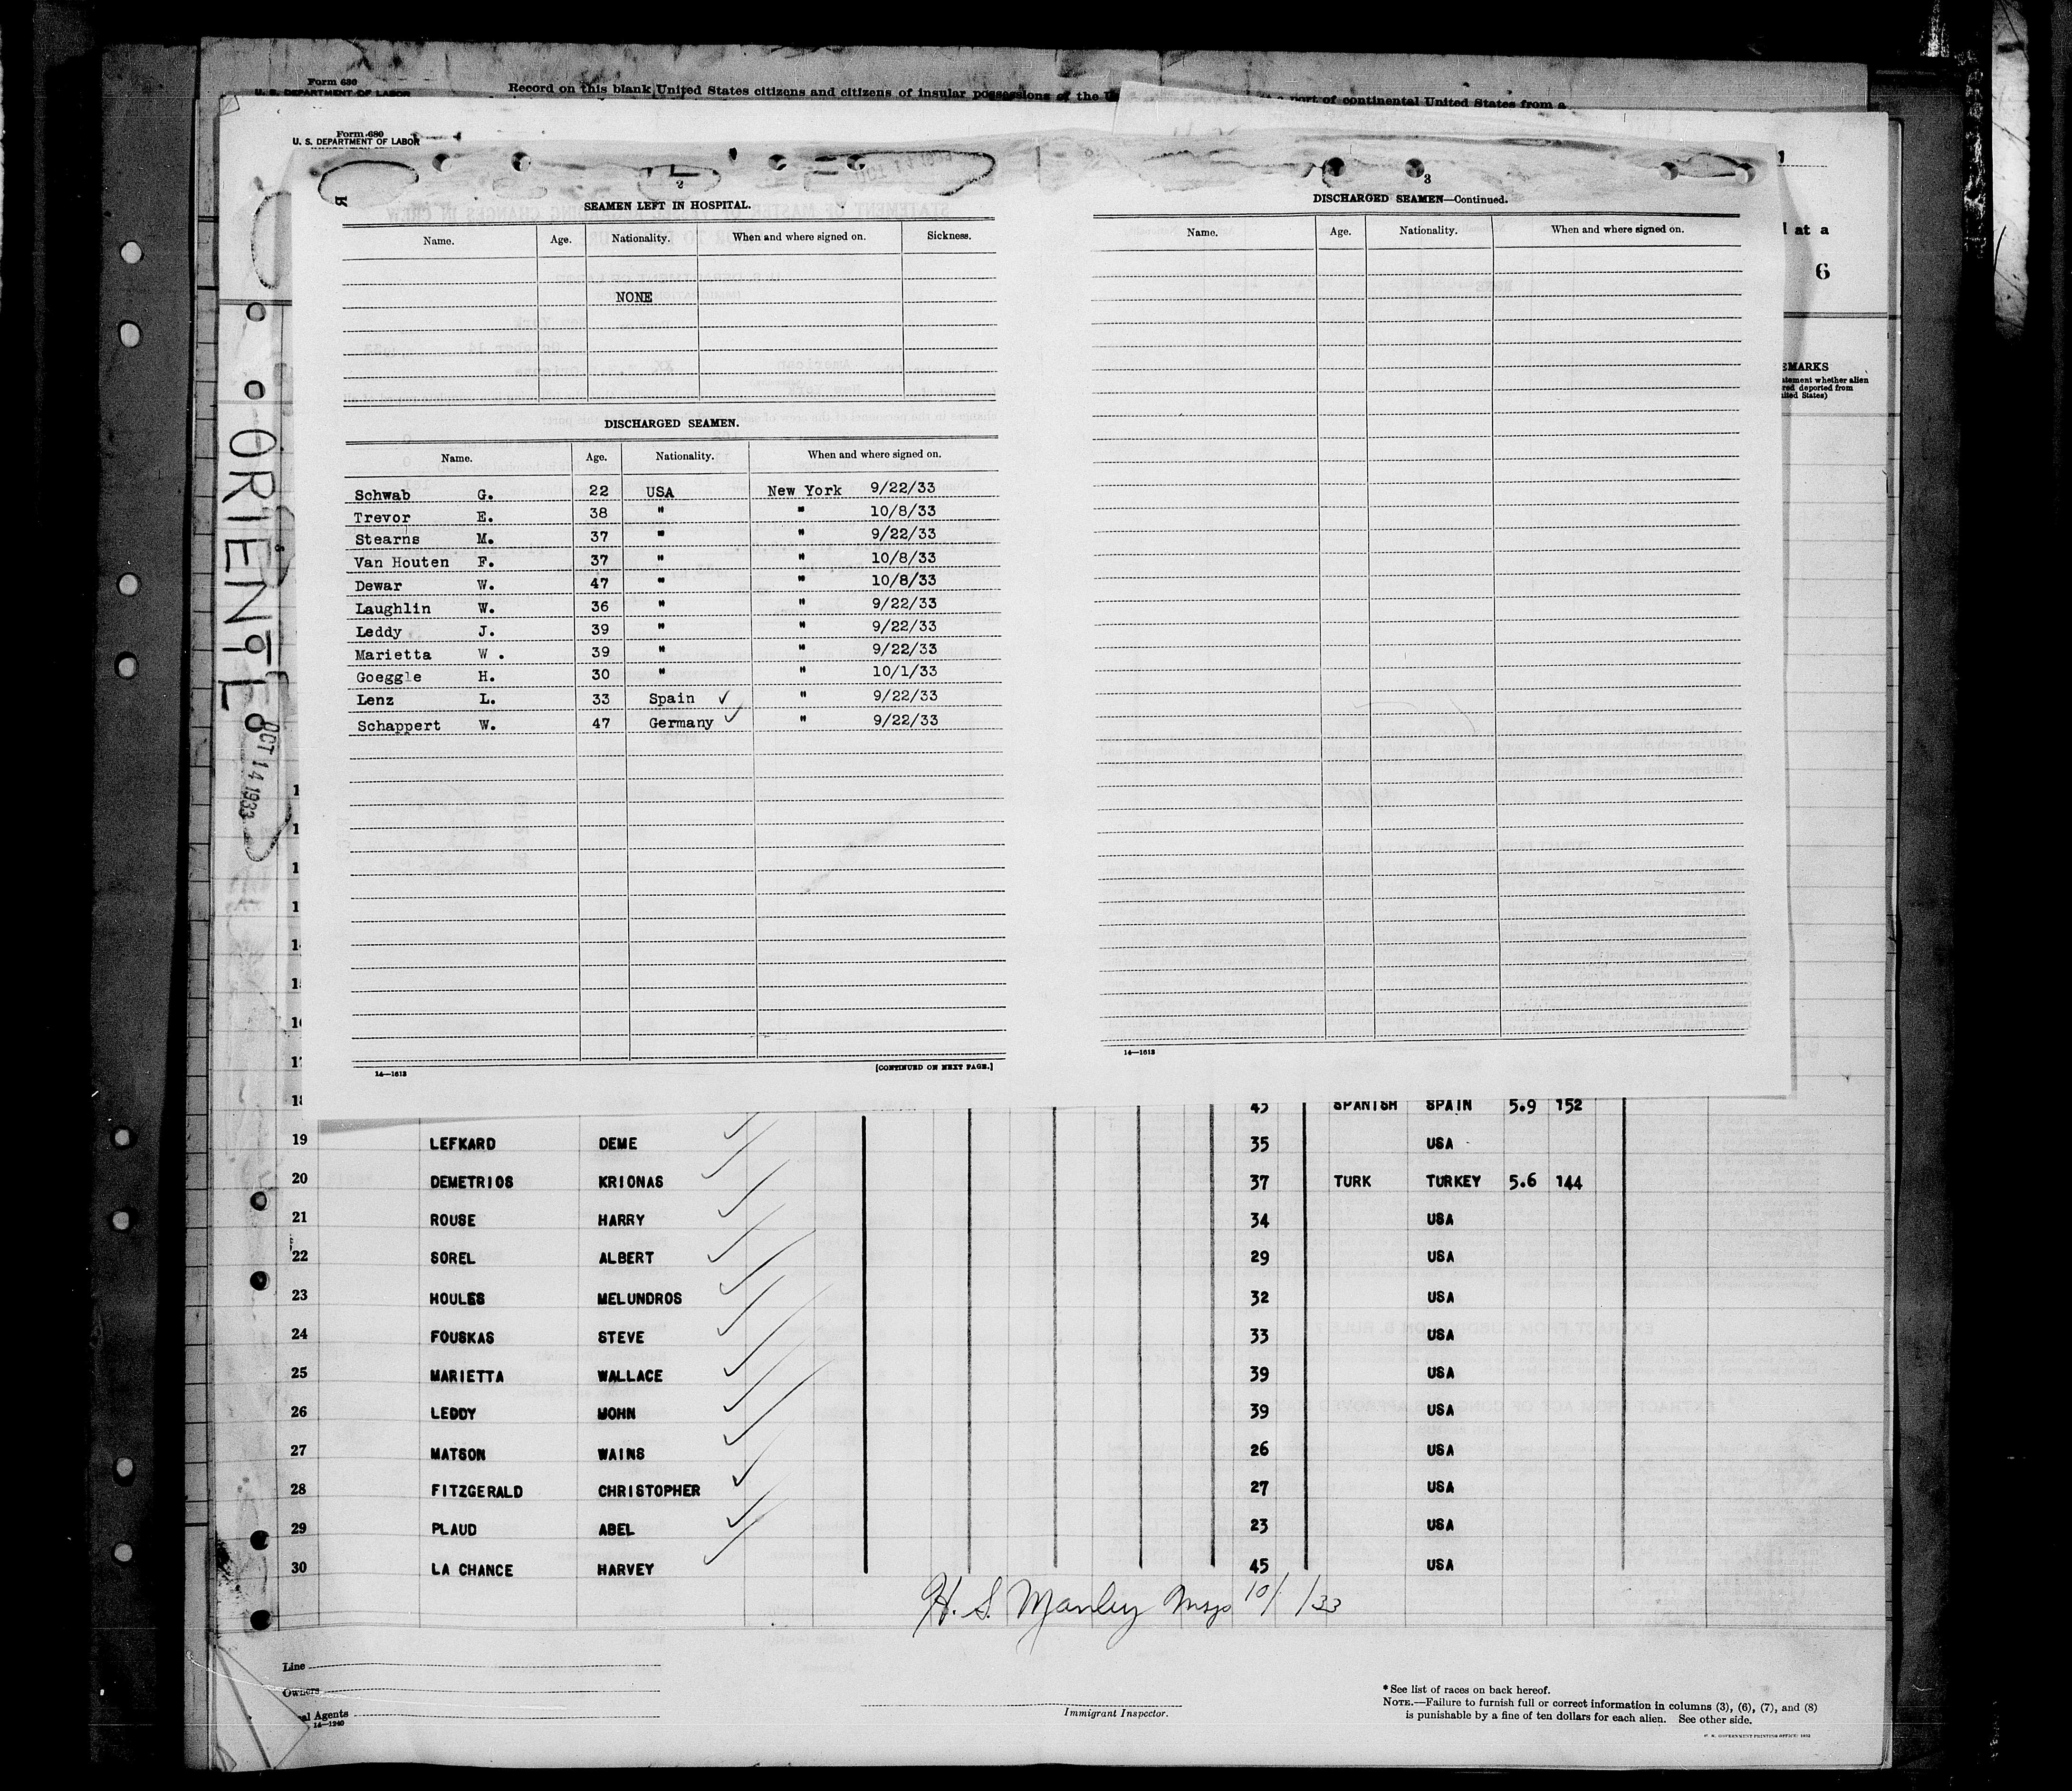 Form 680
U. S. DEPARTMENT OF LABOR
Record on this blank United States citizens and citizens of insular possessions of the port of continental United States from a
Form 680
U. S. DEPARTMENT OF LABOR
2
SEAMEN LEFT IN HOSPITAL.
Name. Age. Nationality. When and where signed on. Sickness.
NONE
DISCHARGED SEAMEN.
Name. Age. Nationality. When and where signed on.
Schwab G. 22 USA New York 9/22/33
Trevor E. 38 " " 10/8/33
Stearns M. 37 " " 9/22/33
Van Houten F. 37 " " 10/8/33
Dewar W. 47 " " 10/8/33
Laughlin W. 36 " " 9/22/33
Leddy J. 39 " " 9/22/33
Marietta W . 39 " " 9/22/33
Goeggle H. 30 " " 10/1/33
Lenz L. 33 Spain ✓ " 9/22/33
Schappert W. 47 Germany ✓ " 9/22/33
14—1613
[CONTINUED ON NEXT PAGE.]
3
DISCHARGED SEAMEN—Continued.
Name. Age. Nationality. When and where signed on.
14—1613
at a
6
ORIENTE
OCT 14 1933
45 SPANISH SPAIN 5.9 152
19 LEFKARD DEME 35 USA
20 DEMETRIOS KRIONAS 37 TURK TURKEY 5.6 144
21 ROUSE HARRY 34 USA
22 SOREL ALBERT 29 USA
23 HOULES MELUNDROS 32 USA
24 FOUSKAS STEVE 33 USA
25 MARIETTA WALLACE 39 USA
26 LEDDY MOHN 39 USA
27 MATSON WAINS 26 USA
28 FITZGERALD CHRISTOPHER 27 USA
29 PLAUD ABEL 23 USA
30 LA CHANCE HARVEY 45 USA
H. S. Manley 10/1/33
Line
Owners
Agents
14—1240
Immigrant Inspector.
* See list of races on back hereof.
NOTE.—Failure to furnish full or correct information in columns (3), (6), (7), and (8)
is punishable by a fine of ten dollars for each alien. See other side.
U. S. GOVERNMENT PRINTING OFFICE: 1932